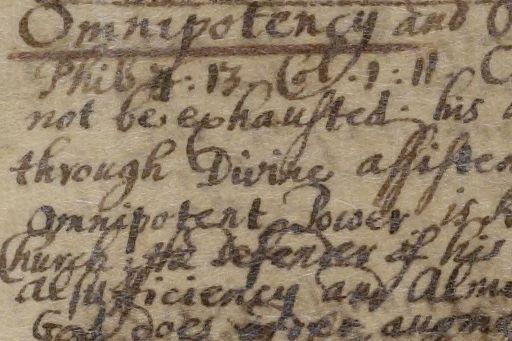 Omnipotency and
Phil 4:13 Col. 1:11
not be exhausted. his
through Divine assisten
Omnipotent Power is
Church, the Defender of his
Alsufficiency and Almi
God does under